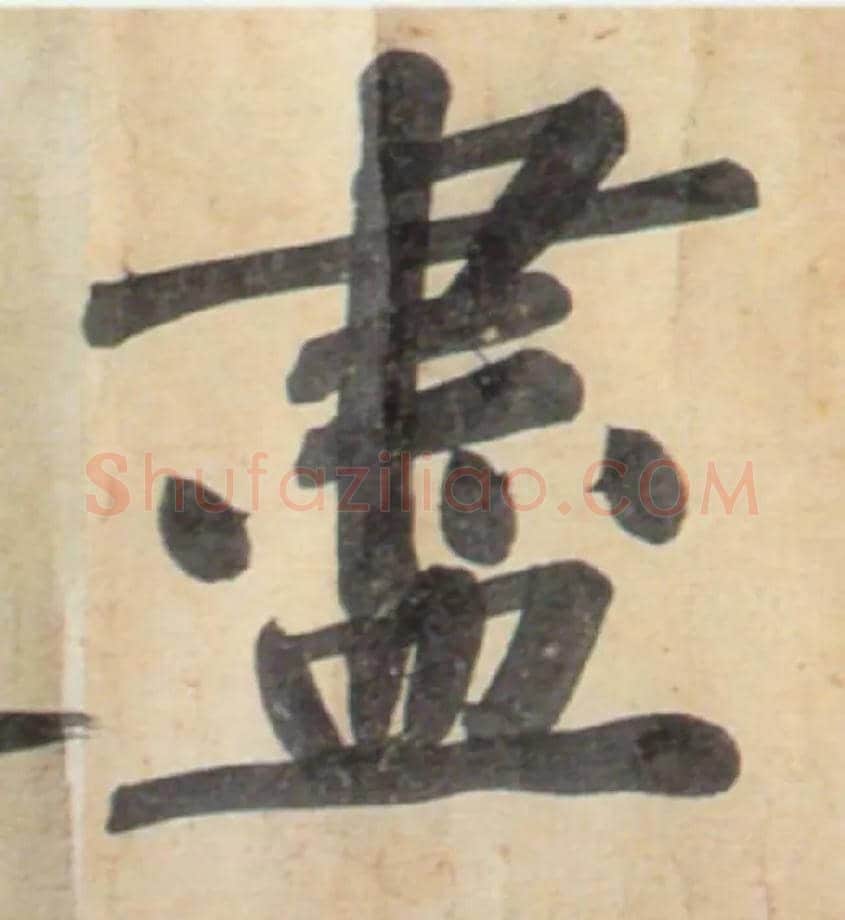 盡
Shufaziliao.COM